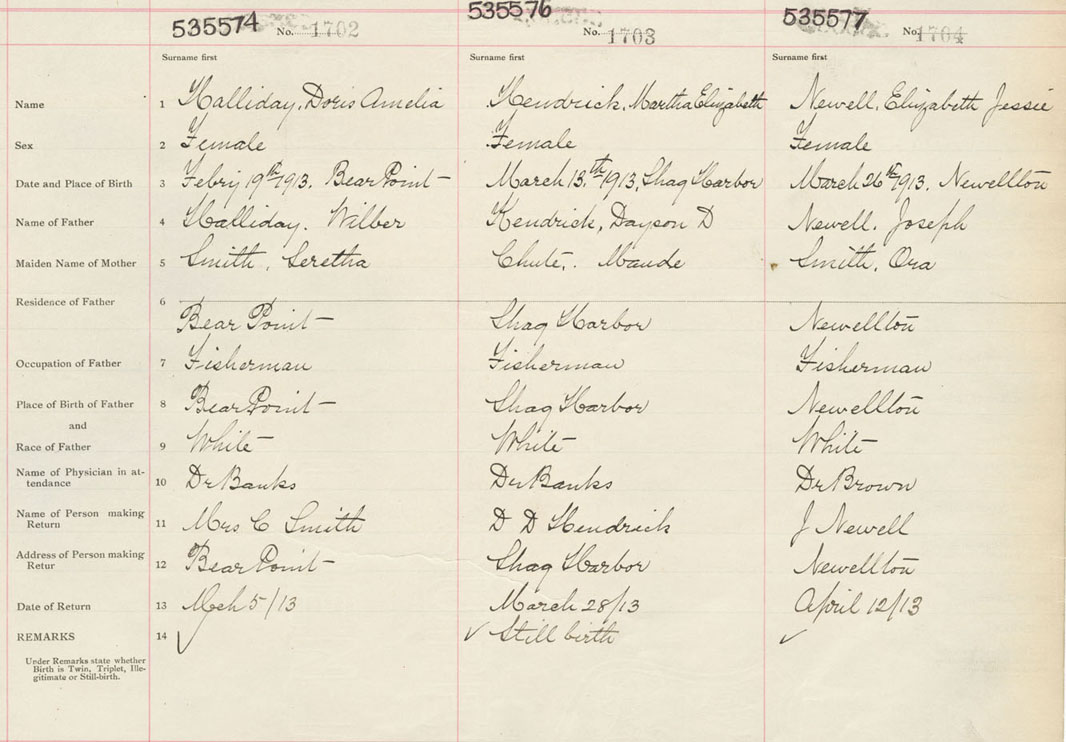 535574 No. 1702 535576 No. 1703 535577 No. 1704
Surname first Surname first Surname first
Name 1 Halliday, Doris Amelia Kendrick, Martha Elizabeth Newell, Elizabeth Jessie
Sex 2 Female Female Female
Date and Place of Birth 3 Febriy 19th 1913. Bear Point March 13th 1913, Shag Harbor March 26th 1913. Newellton
Name of Father 4 Halliday. Wilber Kendrick, Dayson D Newell. Joseph
Maiden Name of Mother 5 Smith, Seretha Chute,. Maude Smith, Ora
Residence of Father 6
Bear Point Shag Harbor Newellton
Occupation of Father 7 Fisherman Fisherman Fisherman
Place of Birth of Father 8 Bear Point Shag Harbor Newellton
and
Race of Father 9 White White White
Name of Physician in at-
tendance 10 Dr Banks Dr Banks Dr Brown
Name of Person making
Return 11 Mrs C Smith D D Kendrick J Newell
Address of Person making
Retur 12 Bear Point Shag Harbor Newellton
Date of Return 13 Mch 5/13 March 28/13 April 12/13
REMARKS 14 ✓ ✓ Still birth ✓
Under Remarks state whether
Birth is Twin, Triplet, Ille-
gitimate or Still-birth.